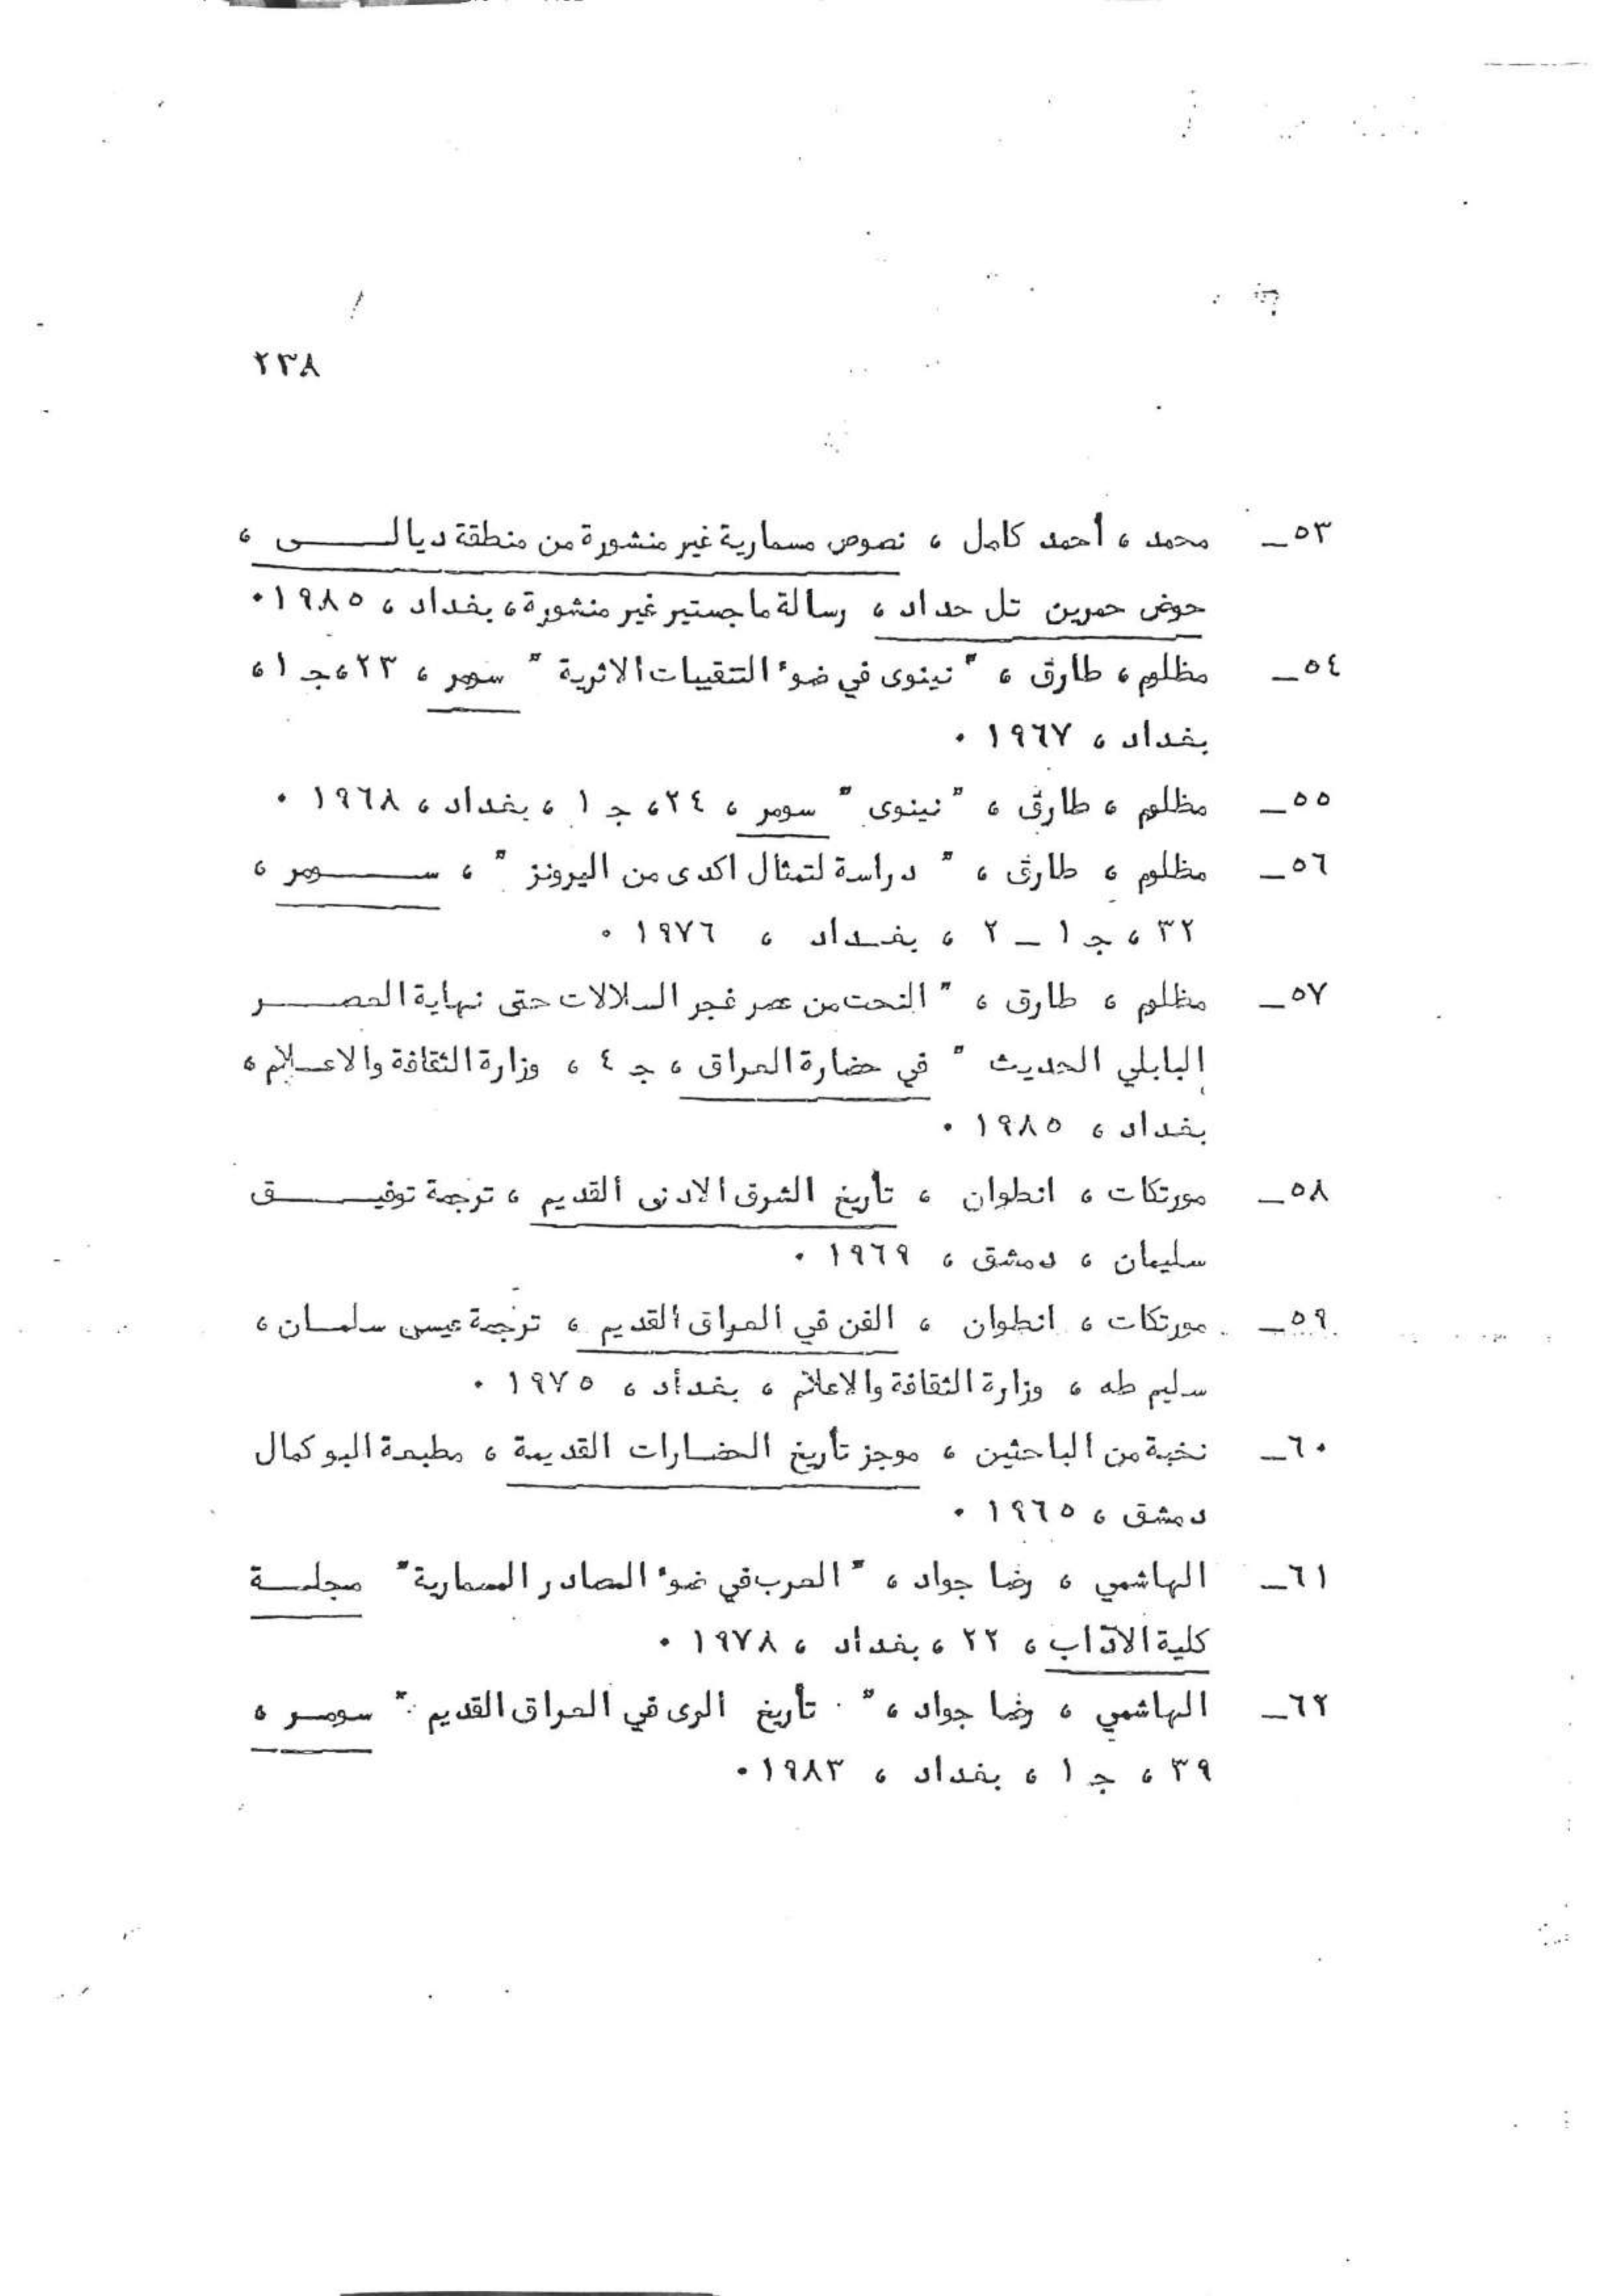 ٢٣٨
٥٣_ محمد ، أحمد كامل ، نصوص مسمارية غير منشورة من منطقة ديالى ،
حوض حمرين تل حداد ، رسالة ماجستير غير منشورة ، بغداد ، ١٩٨٥ ٠
٥٤_ مظلوم ، طارق ، " نينوى في ضوء التنقيبات الاثرية " سومر ، ٢٣ ، جـ ١ ،
بغداد ، ١٩٦٧ ٠
٥٥_ مظلوم ، طارق ، " نينوى " سومر ، ٢٤ ، جـ ١ ، بغداد ، ١٩٦٨ ٠
٥٦_ مظلوم ، طارق ، " دراسة لتمثال اكدى من البرونز " ، سومر ،
٣٢ ، جـ ١ _ ٢ ، بغداد ، ١٩٧٦ ٠
٥٧_ مظلوم ، طارق ، " النحت من عصر فجر السلالات حتى نهاية العصر
البابلي الحديث " في حضارة العراق ، جـ ٤ ، وزارة الثقافة والاعلام ،
بغداد ، ١٩٨٥ ٠
٥٨_ مورتكات ، انطوان ، تأريخ الشرق الادنى القديم ، ترجمة توفيق
سليمان ، دمشق ، ١٩٦٩ ٠
٥٩_ مورتكات ، انطوان ، الفن في العراق القديم ، ترجمة عيسى سلمان ،
سليم طه ، وزارة الثقافة والاعلام ، بغداد ، ١٩٧٥ ٠
٦٠_ نخبة من الباحثين ، موجز تأريخ الحضارات القديمة ، مطبعة البو كمال
دمشق ، ١٩٦٥ ٠
٦١_ الهاشمي ، رضا جواد ، " العرب في ضوء المصادر المسمارية " مجلة
كلية الآداب ، ٢٢ ، بغداد ، ١٩٧٨ ٠
٦٢_ الهاشمي ، رضا جواد ، " تأريخ الرى في العراق القديم " سومر ،
٣٩ ، جـ ١ ، بغداد ، ١٩٨٣ ٠